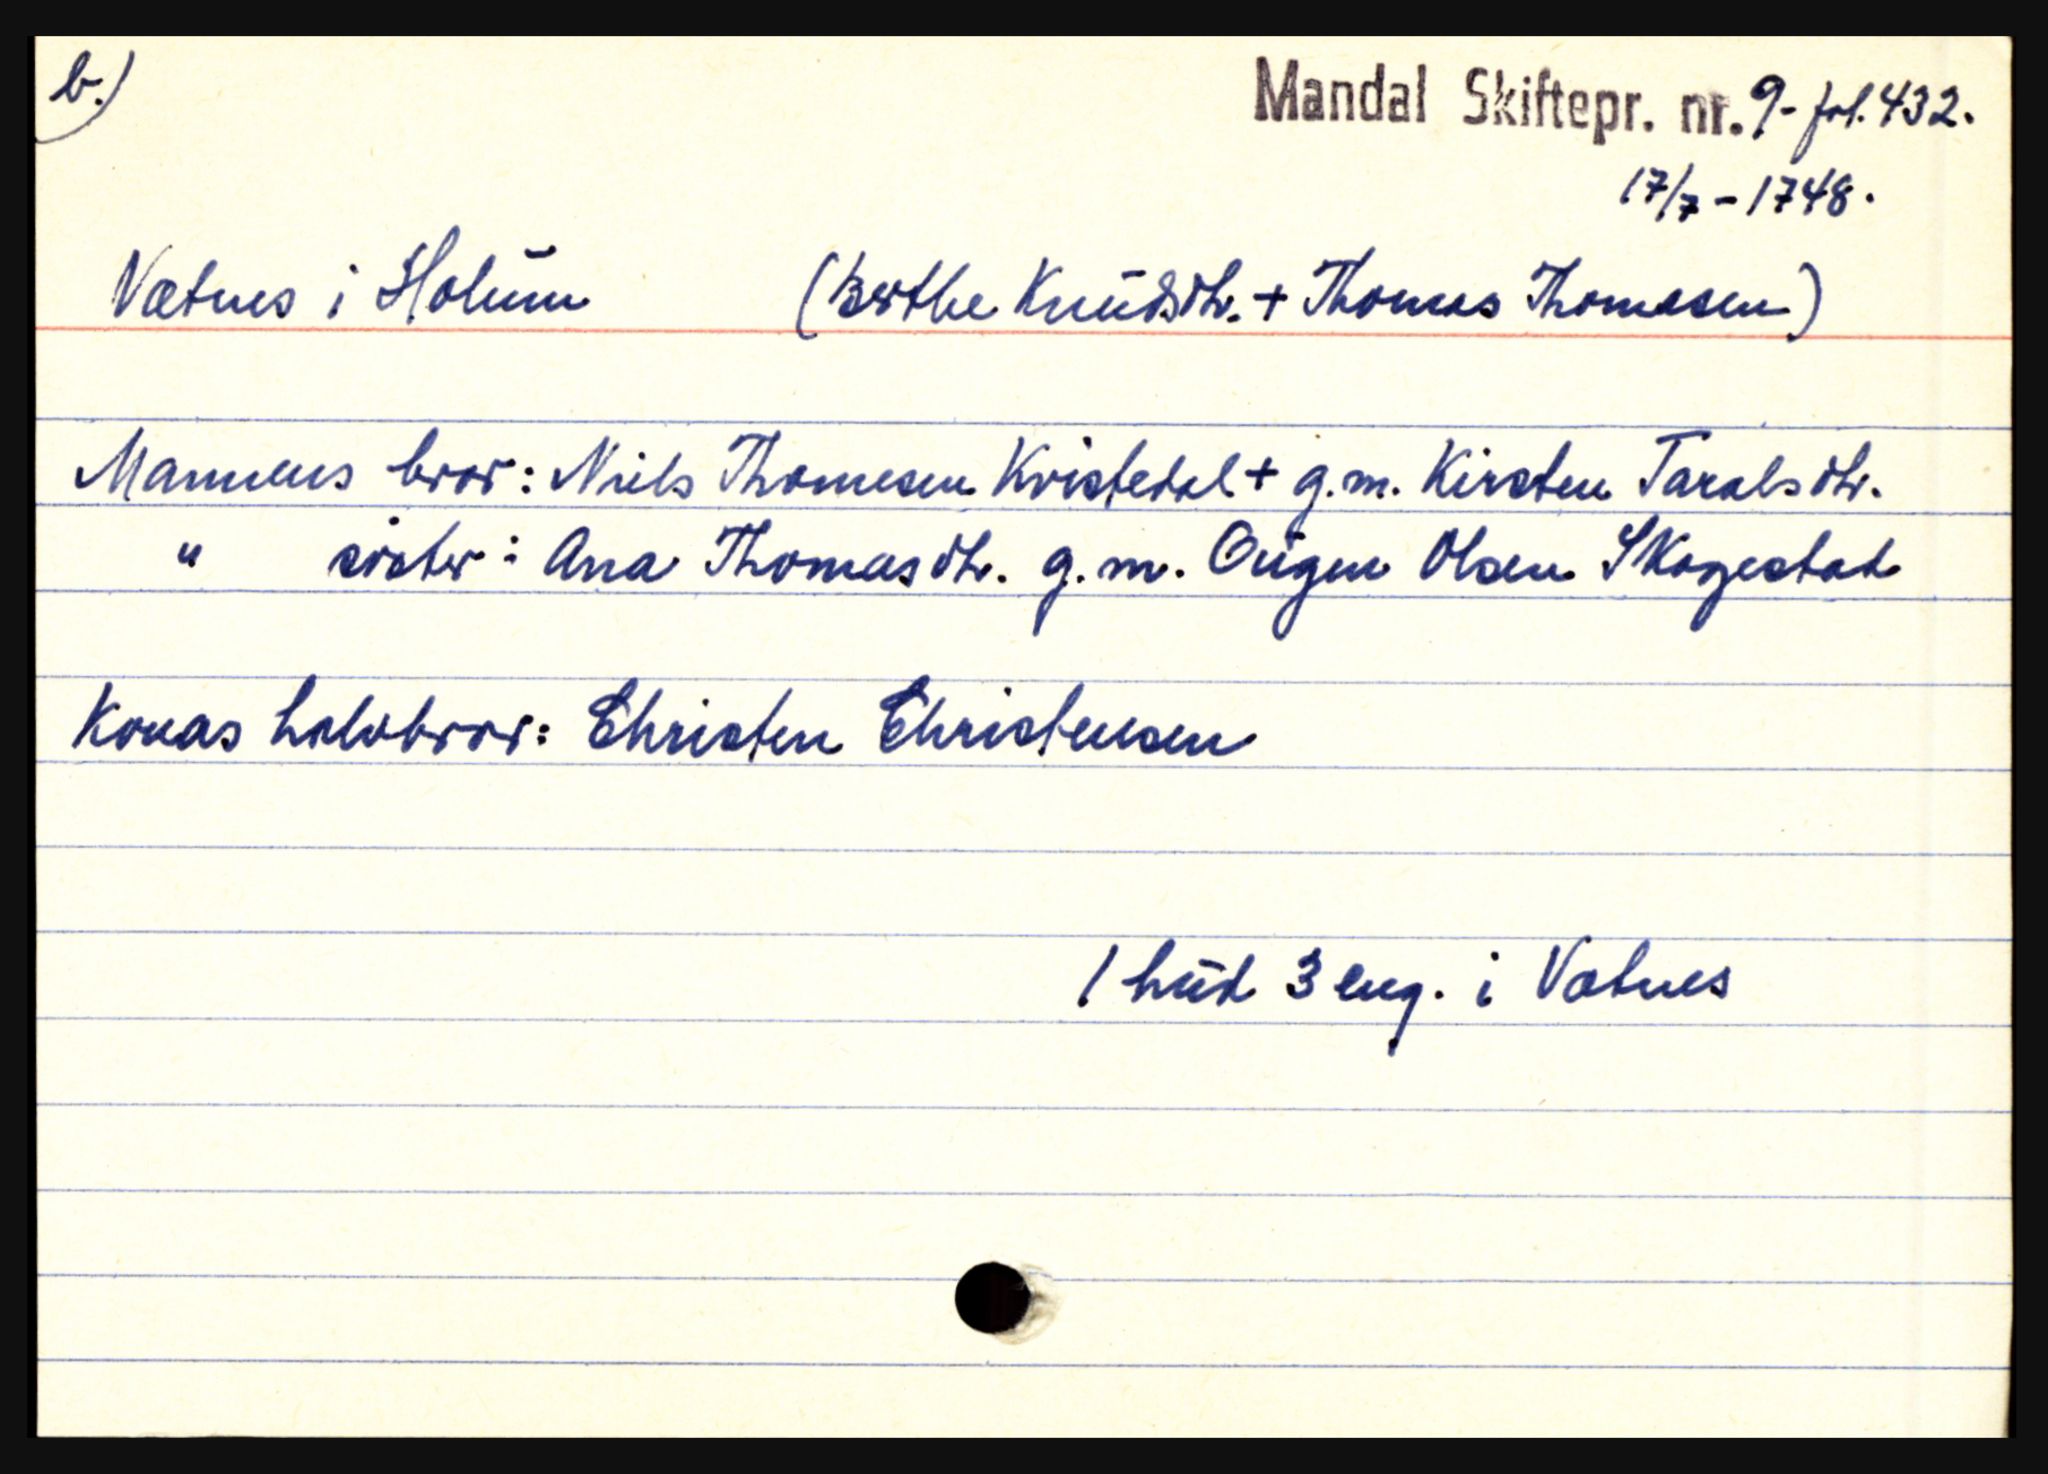 b.)
Mandal Skiftepr. nr. 9- fol. 432.
17/7 - 1748.
Vatnes i Holum (Berthe Knudsdtr. + Thomas Thomasen)
Mannens bror: Niels Thomesen Kvistedal + g.m. Kirsten Taralsdtr.
" söster: Ana Thomasdtr. g.m. Ougen Olsen Skogestad
Konas halvbror: Christen Christensen
1 hud 3 eng. i Vatnes